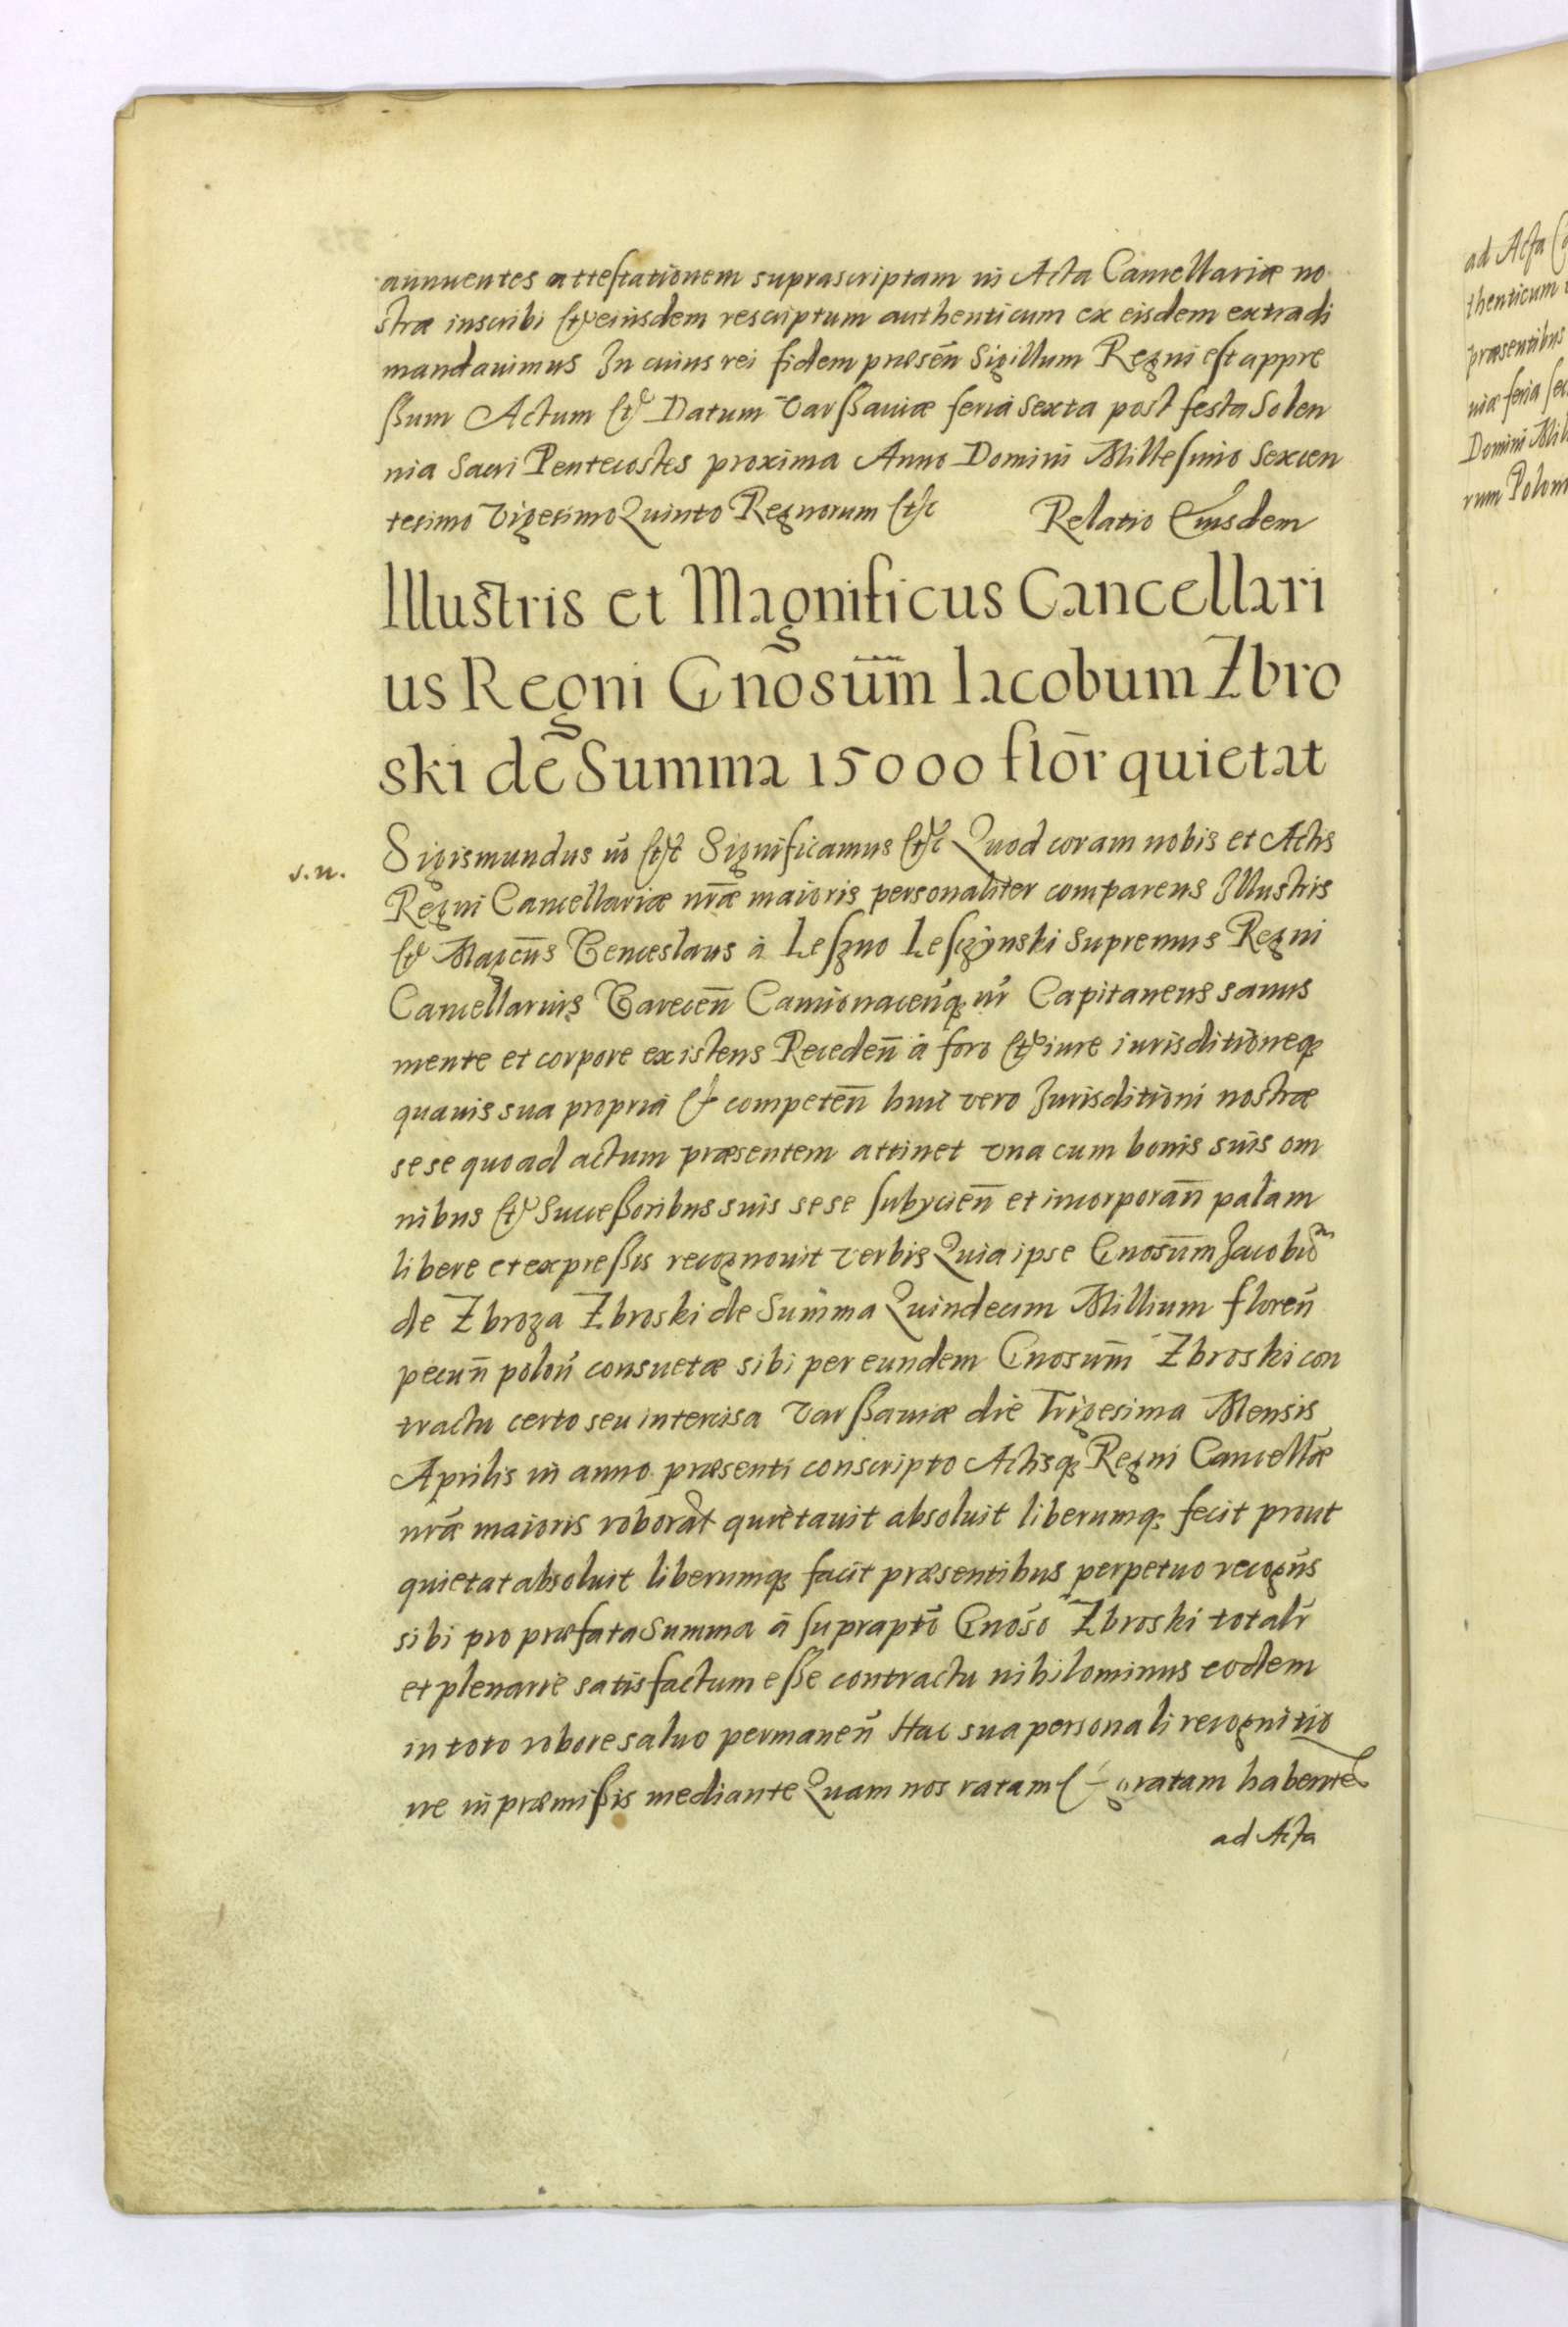 annuentes attestationem suprascriptam in Acta Cancellariæ no
stræ inscribi et eiusdem rescriptum authenticum ex eisdem extradi
mandauimus In cuius rei fidem præsen̄ Sigillum Regni est appre
ssum Actum et Datum Varssauiæ feria Sexta post festa Solen
nia Sacri Pentecostes proxima Anno Domini Millesimo Sexcen
tesimo Vigesimo Quinto Regnorum etc Relatio Eiusdem
Illustris et Magnificus Cancellari
us Regni Gnosum̄ Iacobum Zbro
ski de Summa 15000 flor̄ quietat
s.n.
Sigismundus etc Significamus etc Quod coram nobis et Actis
Regni Cancellariæ nrǣ maioris personaliter comparens Illustris
et Magcus̄ Venceslaus à Leszno Lesczÿnski Supremus Regni
Cancellarius Varecen̄ Camionacen̄q; nr̄ Capitaneus sanus
mente et corpore existens Receden̄ à foro et iure iurisditioneq;
quauis sua propria et competen̄ huic vero Jurisditioni nostræ
sese quo ad actum præsentem attinet vna cum bonis suis om
nibus et Successoribus suis sese subycien̄ et incorporan̄ palam
libere et expressis recognouit verbis Quia ipse Gnosum̄ Jacobū
de Zbroza Zbroski de Summa Quindecim Millium floren̄
pecun̄ polon̄ consuetæ sibi per eundem Gnosum̄ Zbroski con
tractu certo seu intercisa Varssauiæ die Trigesima Mensis
Aprilis in anno præsenti conscripto Actisq; Regni Cancellǣ
nrǣ maioris roborat̄ quietauit absoluit liberumq; fecit prout
quietat absoluit liberumq; facit præsentibus perpetuo recogn̄s
sibi pro præfata Summa à supraptō Gnosō Zbroski totalr̄
et plenarie satisfactum esse contractu nihilominus eodem
in toto robore saluo permanen̄ Hac sua personali recognitio
ne in præmissis mediante Quam nos ratam et gratam habentes
ad Acta
ad Acta
thenticum
præsentibus
niæ feria
Domini
rum